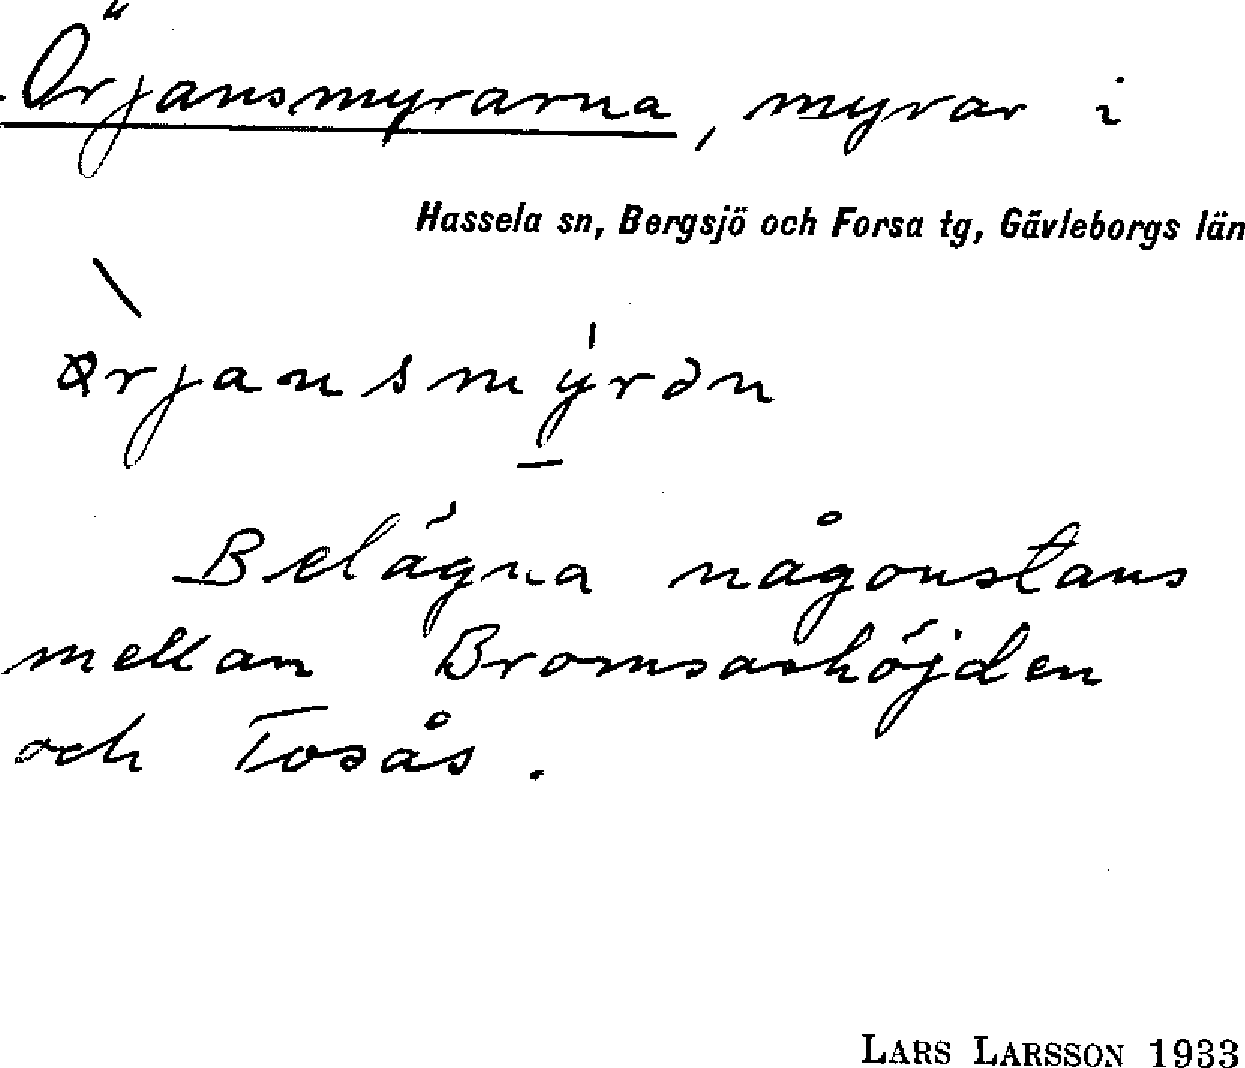 Örjansmyrarna, myrar i
Hassela sn, Bergsjö och Forsa tg, Gävleborgs län
ørjansmýrən
Belägna någonstans
mellan Bromsashöjden
och Tosås.
LARS LARSSON 1933